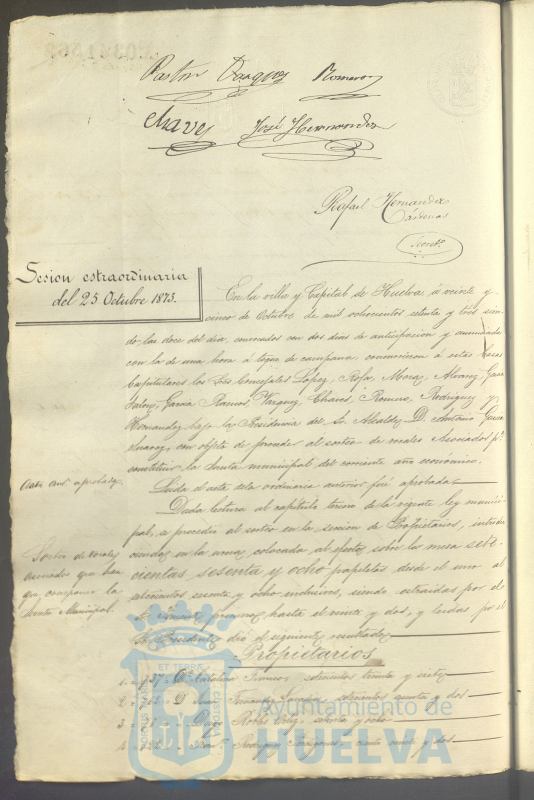 Pastor Vazquez Romero
Chavez José Hernandez
Rafael Hernandez
Cárdenas
Secret.º
Sesion estraordinaria
del 25 Octubre 1873.
En la villa y Capital de Huelva, á veinte y
cinco de Octubre de mil ochocientos setenta y tres sien-
do las doce del dia, convocados con dos dias de anticipacion y anunciado
con la de una hora á toque de campana, concurrieron á estas Casas
Capitulares los Sres Concejales Lopez, Rofa, Mora, Alvarez, Garcia
Garcia Ramos, Vazquez, Chaves, Romero, Rodriguez y
Hernandez bajo la Presidencia del Sr. Alcalde D. Antonio Garcia
con objeto de proceder al sorteo de vocales Asociados pª
constituir la Junta municipal del corriente año económico.
Acta ant. aprobada.
Leida el acta de la ordinaria anterior fué aprobada
Dada lectura al capítulo tercero de la vigente ley munici-
pal, se procedió al sorteo en la seccion de Propietarios, introdu-
Sorteo de vocales
asociados que han
que componer la
Junta Municipal.
ciendo en la urna colocada al efecto sobre la mesa sete-
cientas sesenta y ocho papeletas desde el uno al
setecientos sesenta y ocho inclusives, siendo estraidas por el
hasta el veinte y dos, y leidas por el
Sr. Presidente dió el siguiente resultado
Propietarios
1 737 Dª Carolina setecientos treinta y siete
2 D. Juan Fernandez setecientos y dos
3 Diego Robles Ortiz, setenta y ocho
4 Rodriguez ciento veinte y dos
Ayuntamiento de
HUELVA